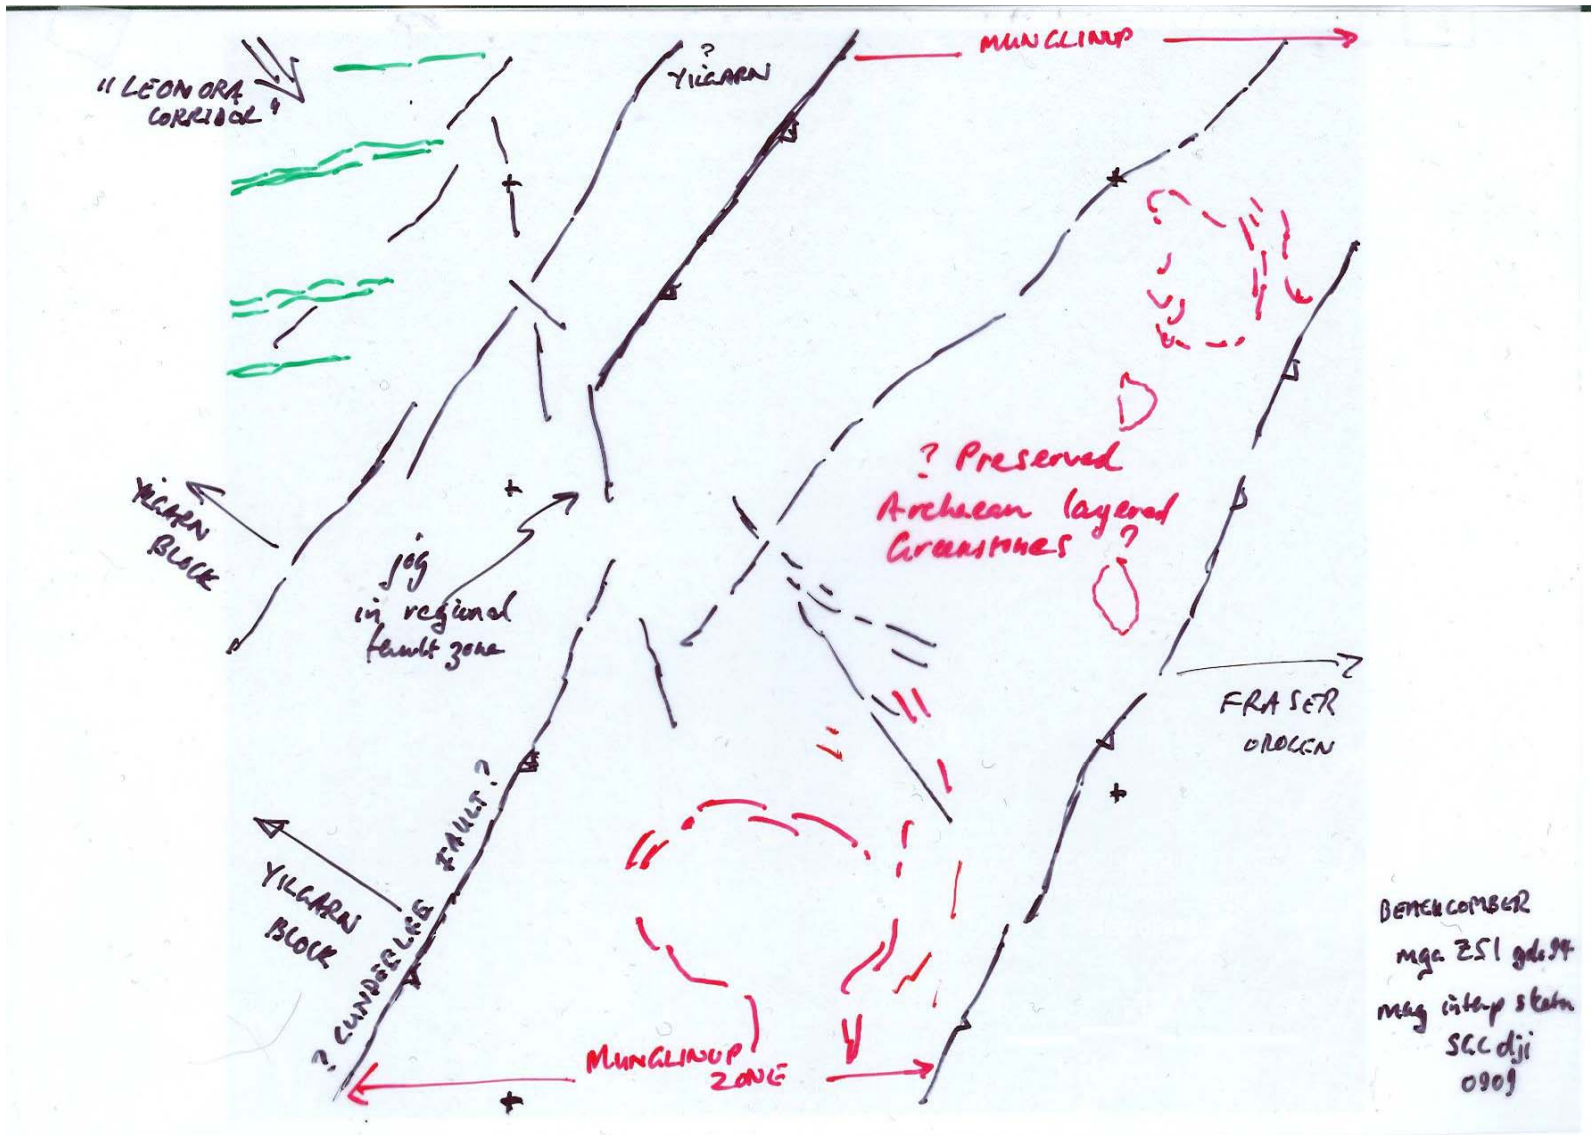 "LEONORA
CORRIDOR"
?
YILGARN
MUNGLINUP
YILGARN
BLOCK
jog
in regional
fault zone
? Preserved
Archaean layered
Greenstones ?
FRASER
OROGEN
YILGARN
BLOCK
? CUNDEELEE FAULT ?
MUNGLINUP
ZONE
BEACHCOMBER
mga Z51 gda94
mag interp sketch
SGC dji
0909